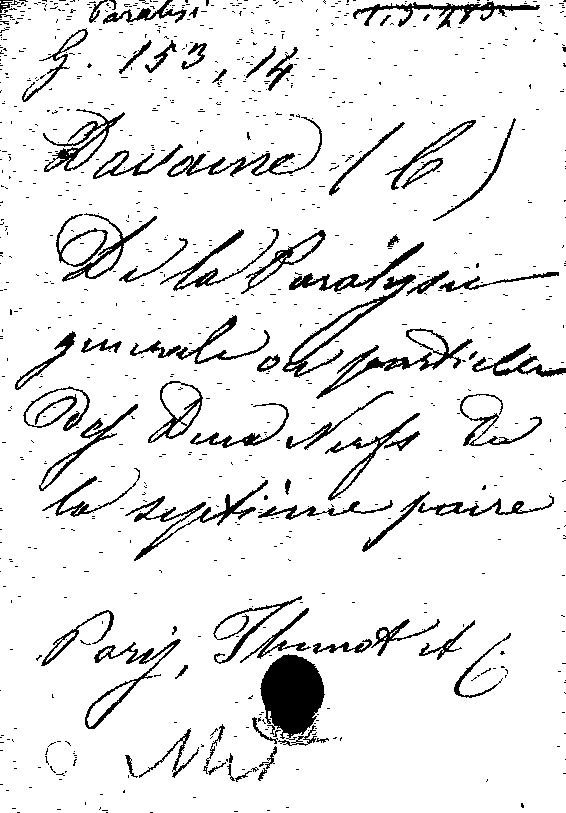 Paralisi
G. 153, 14
Davaine (C)
De la Paralysie
generale ou partielle
des Deux Nerfs de
la septième paire
Paris, Thunot et C.